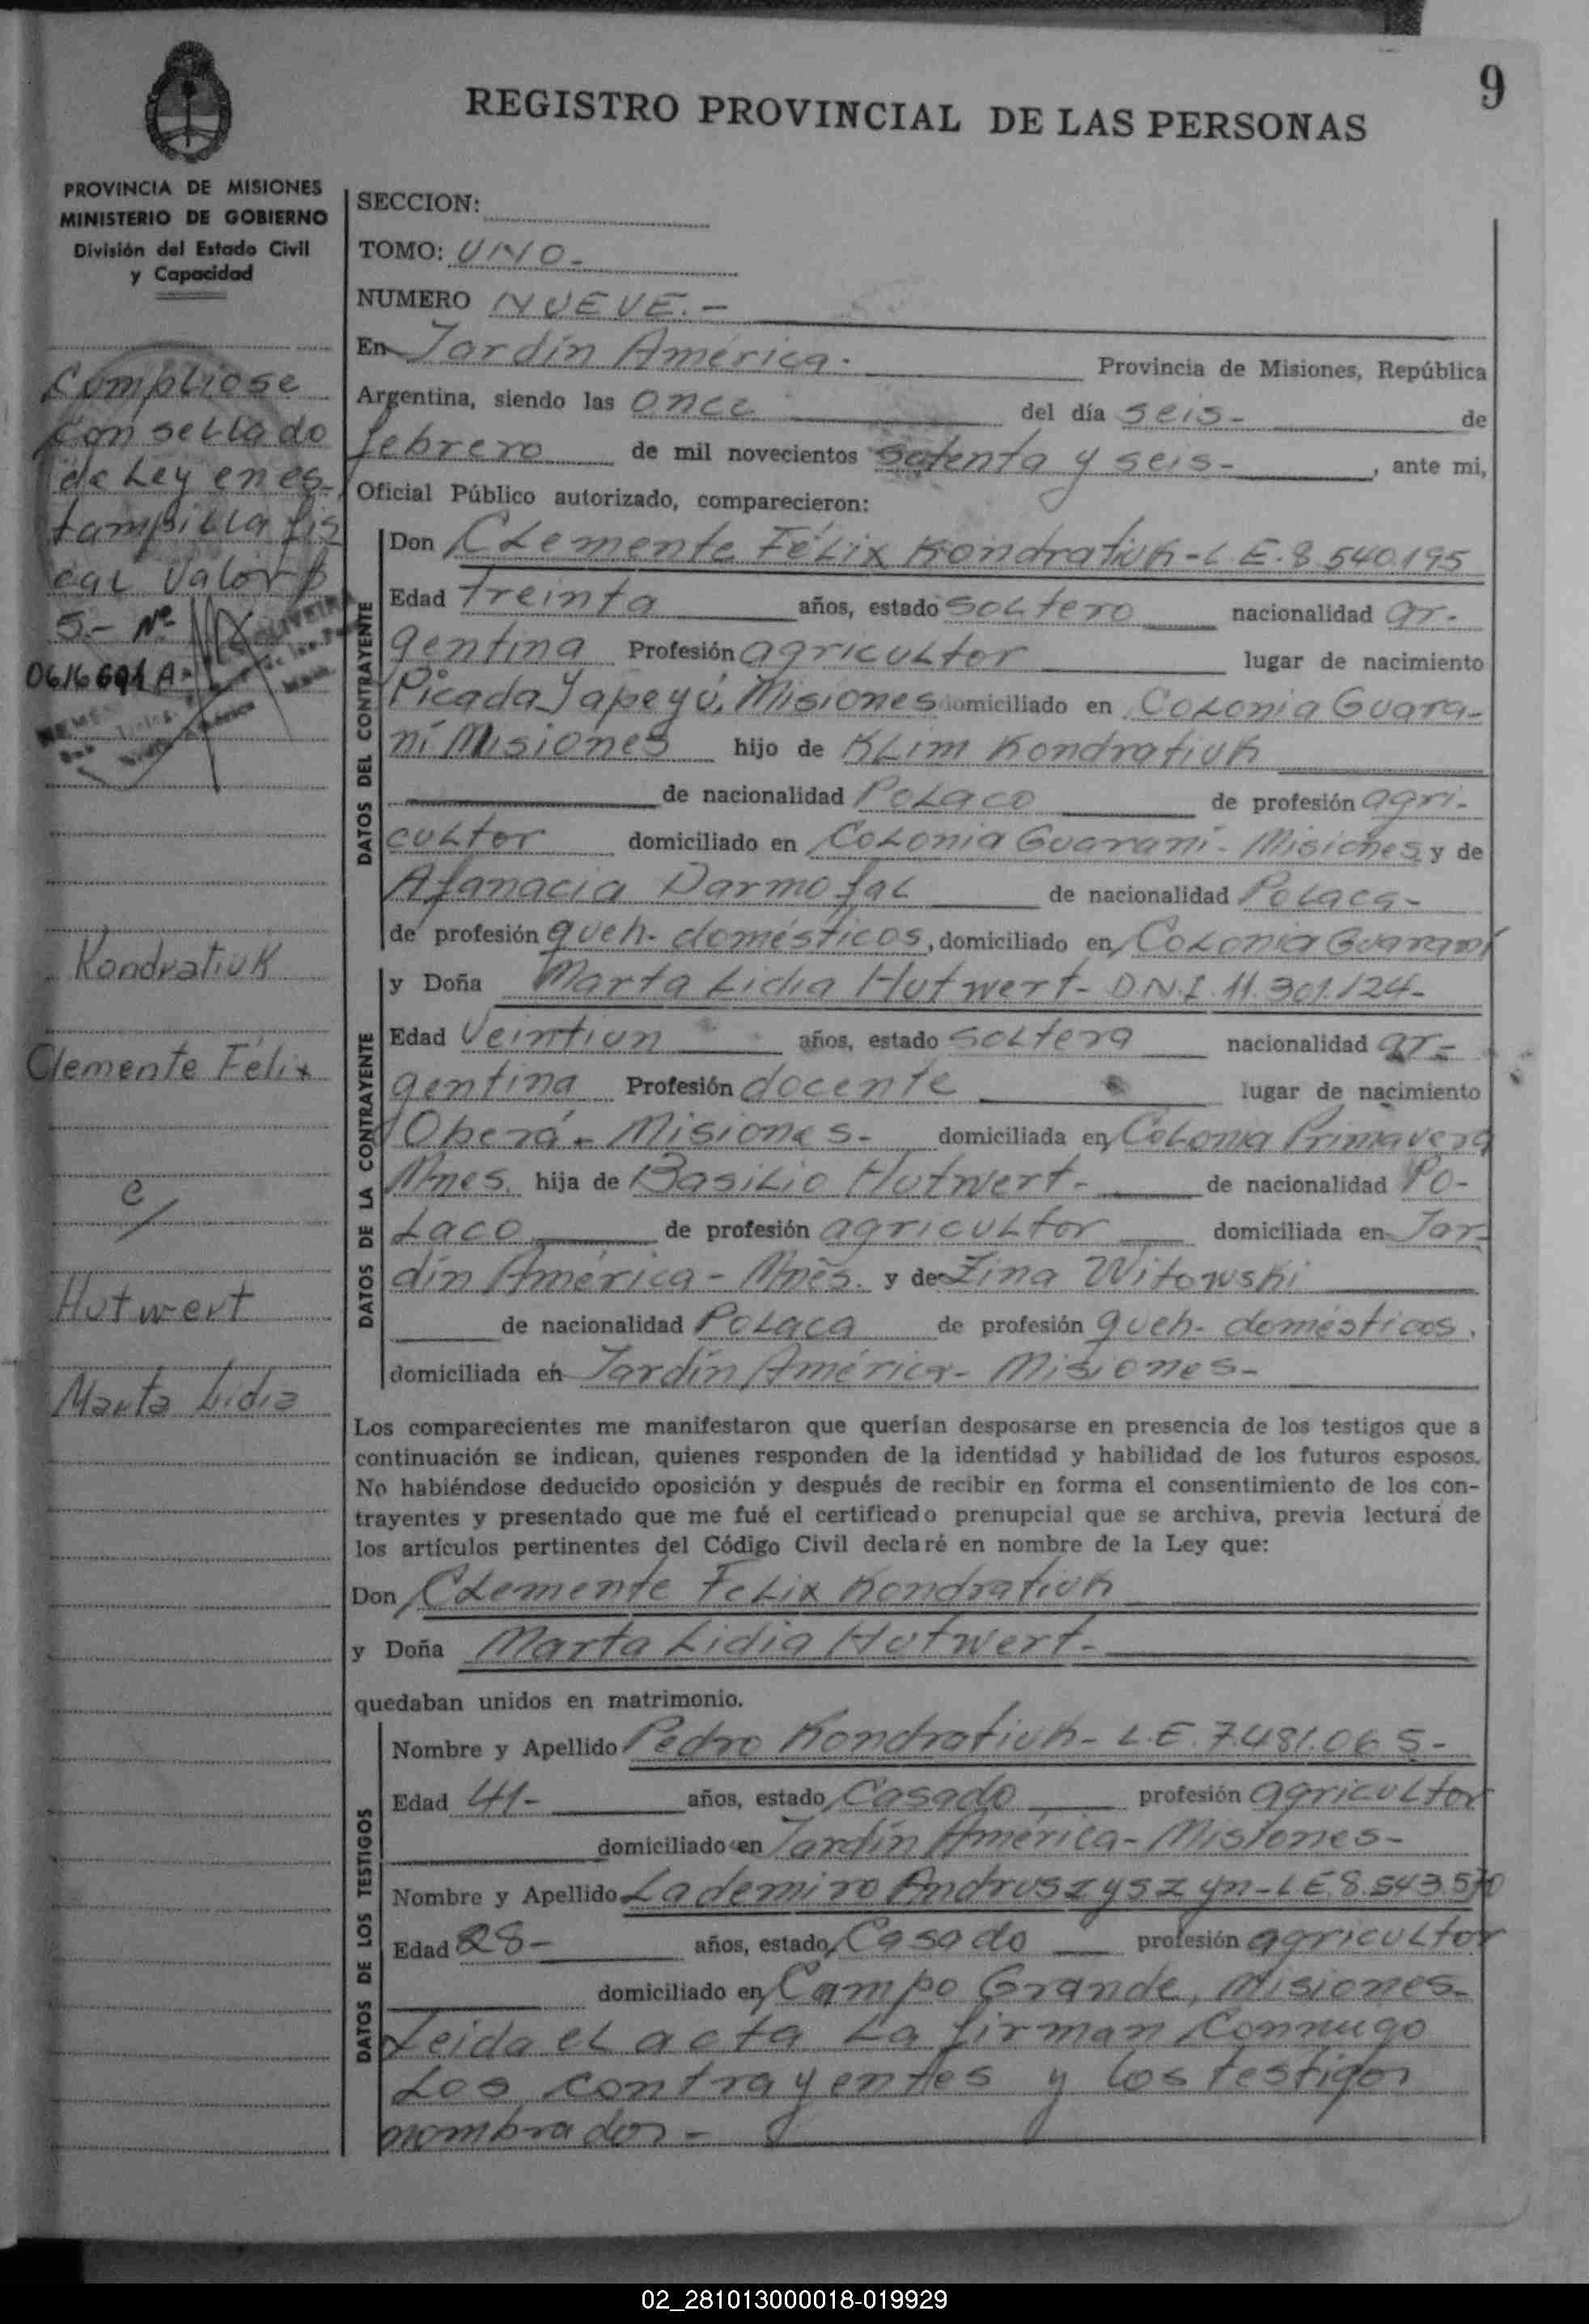 9
REGISTRO PROVINCIAL DE LAS PERSONAS
PROVINCIA DE MISIONES
MINISTERIO DE GOBIERNO
División del Estado Civil
y Capacidad
Cumpliose
con sellado
de Ley en es-
tampilla fis
cal valor $
5.- Nº
0616601 A-
Kondratiuk
Clemente Félix
c/
Hutwert
Marta Lidia
SECCION:
TOMO: UNO-
NUMERO NUEVE.-
En Jardín América. Provincia de Misiones, República
Argentina, siendo las once del día seis- de
febrero de mil novecientos setenta y seis- , ante mi,
Oficial Público autorizado, comparecieron:
DATOS DEL CONTRAYENTE
Don Clemente Félix Kondratiuk-L.E.8.540.195
Edad treinta años, estado soltero nacionalidad ar-
gentina Profesión agricultor lugar de nacimiento
Picada Yapeyú, Misiones domiciliado en Colonia Guara-
ní Misiones hijo de Klim Kondratiuk
de nacionalidad Polaco de profesión agri-
cultor domiciliado en Colonia Guaraní- Misiones y de
Afanacia Darmofal de nacionalidad Polaca-
de profesión queh- domésticos, domiciliado en Colonia Guaraní
DATOS DE LA CONTRAYENTE
y Doña Marta Lidia Hutwert- D.N.I. 11.301.124-
Edad Veintiun años, estado soltera nacionalidad ar-
gentina Profesión docente lugar de nacimiento
Oberá- Misiones- domiciliada en Colonia Primavera
Mnes. hija de Basilio Hutwert- de nacionalidad Po-
laco de profesión agricultor domiciliada en Jar-
dín América- Mnes. y de Zina Witowski
de nacionalidad Polaca de profesión queh- domésticos.
domiciliada en Jardín América- Misiones-
Los comparecientes me manifestaron que querían desposarse en presencia de los testigos que a
continuación se indican, quienes responden de la identidad y habilidad de los futuros esposos.
No habiéndose deducido oposición y después de recibir en forma el consentimiento de los con-
trayentes y presentado que me fué el certificado prenupcial que se archiva, previa lectura de
los artículos pertinentes del Código Civil declaré en nombre de la Ley que:
Don Clemente Felix Kondratiuk
y Doña Marta Lidia Hutwert-
quedaban unidos en matrimonio.
DATOS DE LOS TESTIGOS
Nombre y Apellido Pedro Kondratiuk- L.E. 7.481.065-
Edad 41- años, estado Casado profesión agricultor
domiciliado en Jardín América- Misiones-
Nombre y Apellido Lademiro Andruszyszyn-L.E.8.543.570
Edad 28- años, estado Casado profesión agricultor
domiciliado en Campo Grande, Misiones-
Leida el acta la firman conmigo
los contrayentes y los testigos
nombrados-
02_281013000018-019929